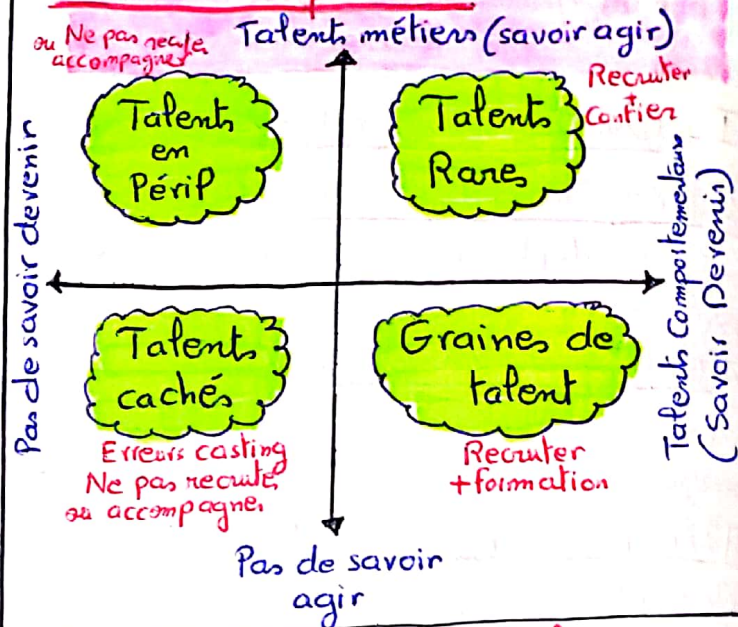 Talents métiers (savoir agir)
ou Ne pas recruter
accompagner
Talents
en
Péril
Talents
Rares
Recruter
+
Confier
Pas de savoir devenir
Talents Comportementaux
(Savoir Devenir)
Talents
cachés
Graines de
talent
Erreurs casting
Ne pas recruter
ou accompagner
Recruter
+ formation
Pas de savoir
agir